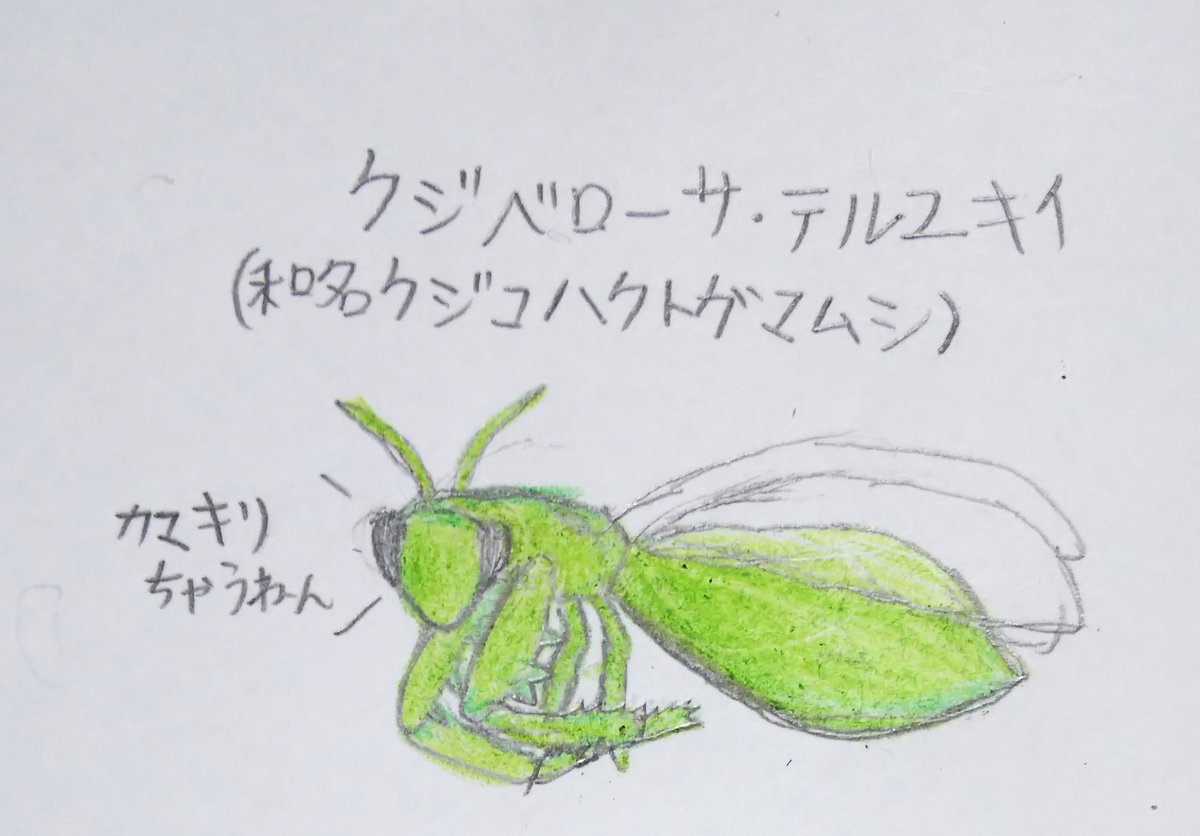 ケジベローサ・テルユキイ
(和名ケジコハクトガマムシ)
カマキリ
ちゃうねーん